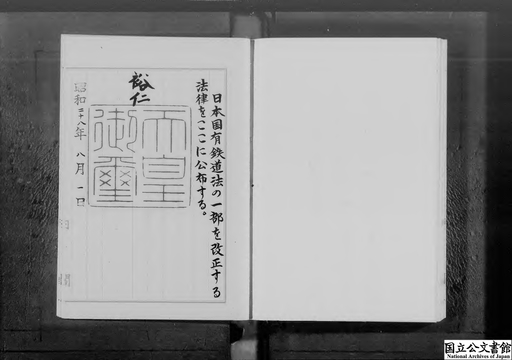 日本国有鉄道法の一部を改正する
法律をここに公布する。
裕仁
天皇
御璽
昭和二十八年八月一日
国立公文書館
National Archives of Japan